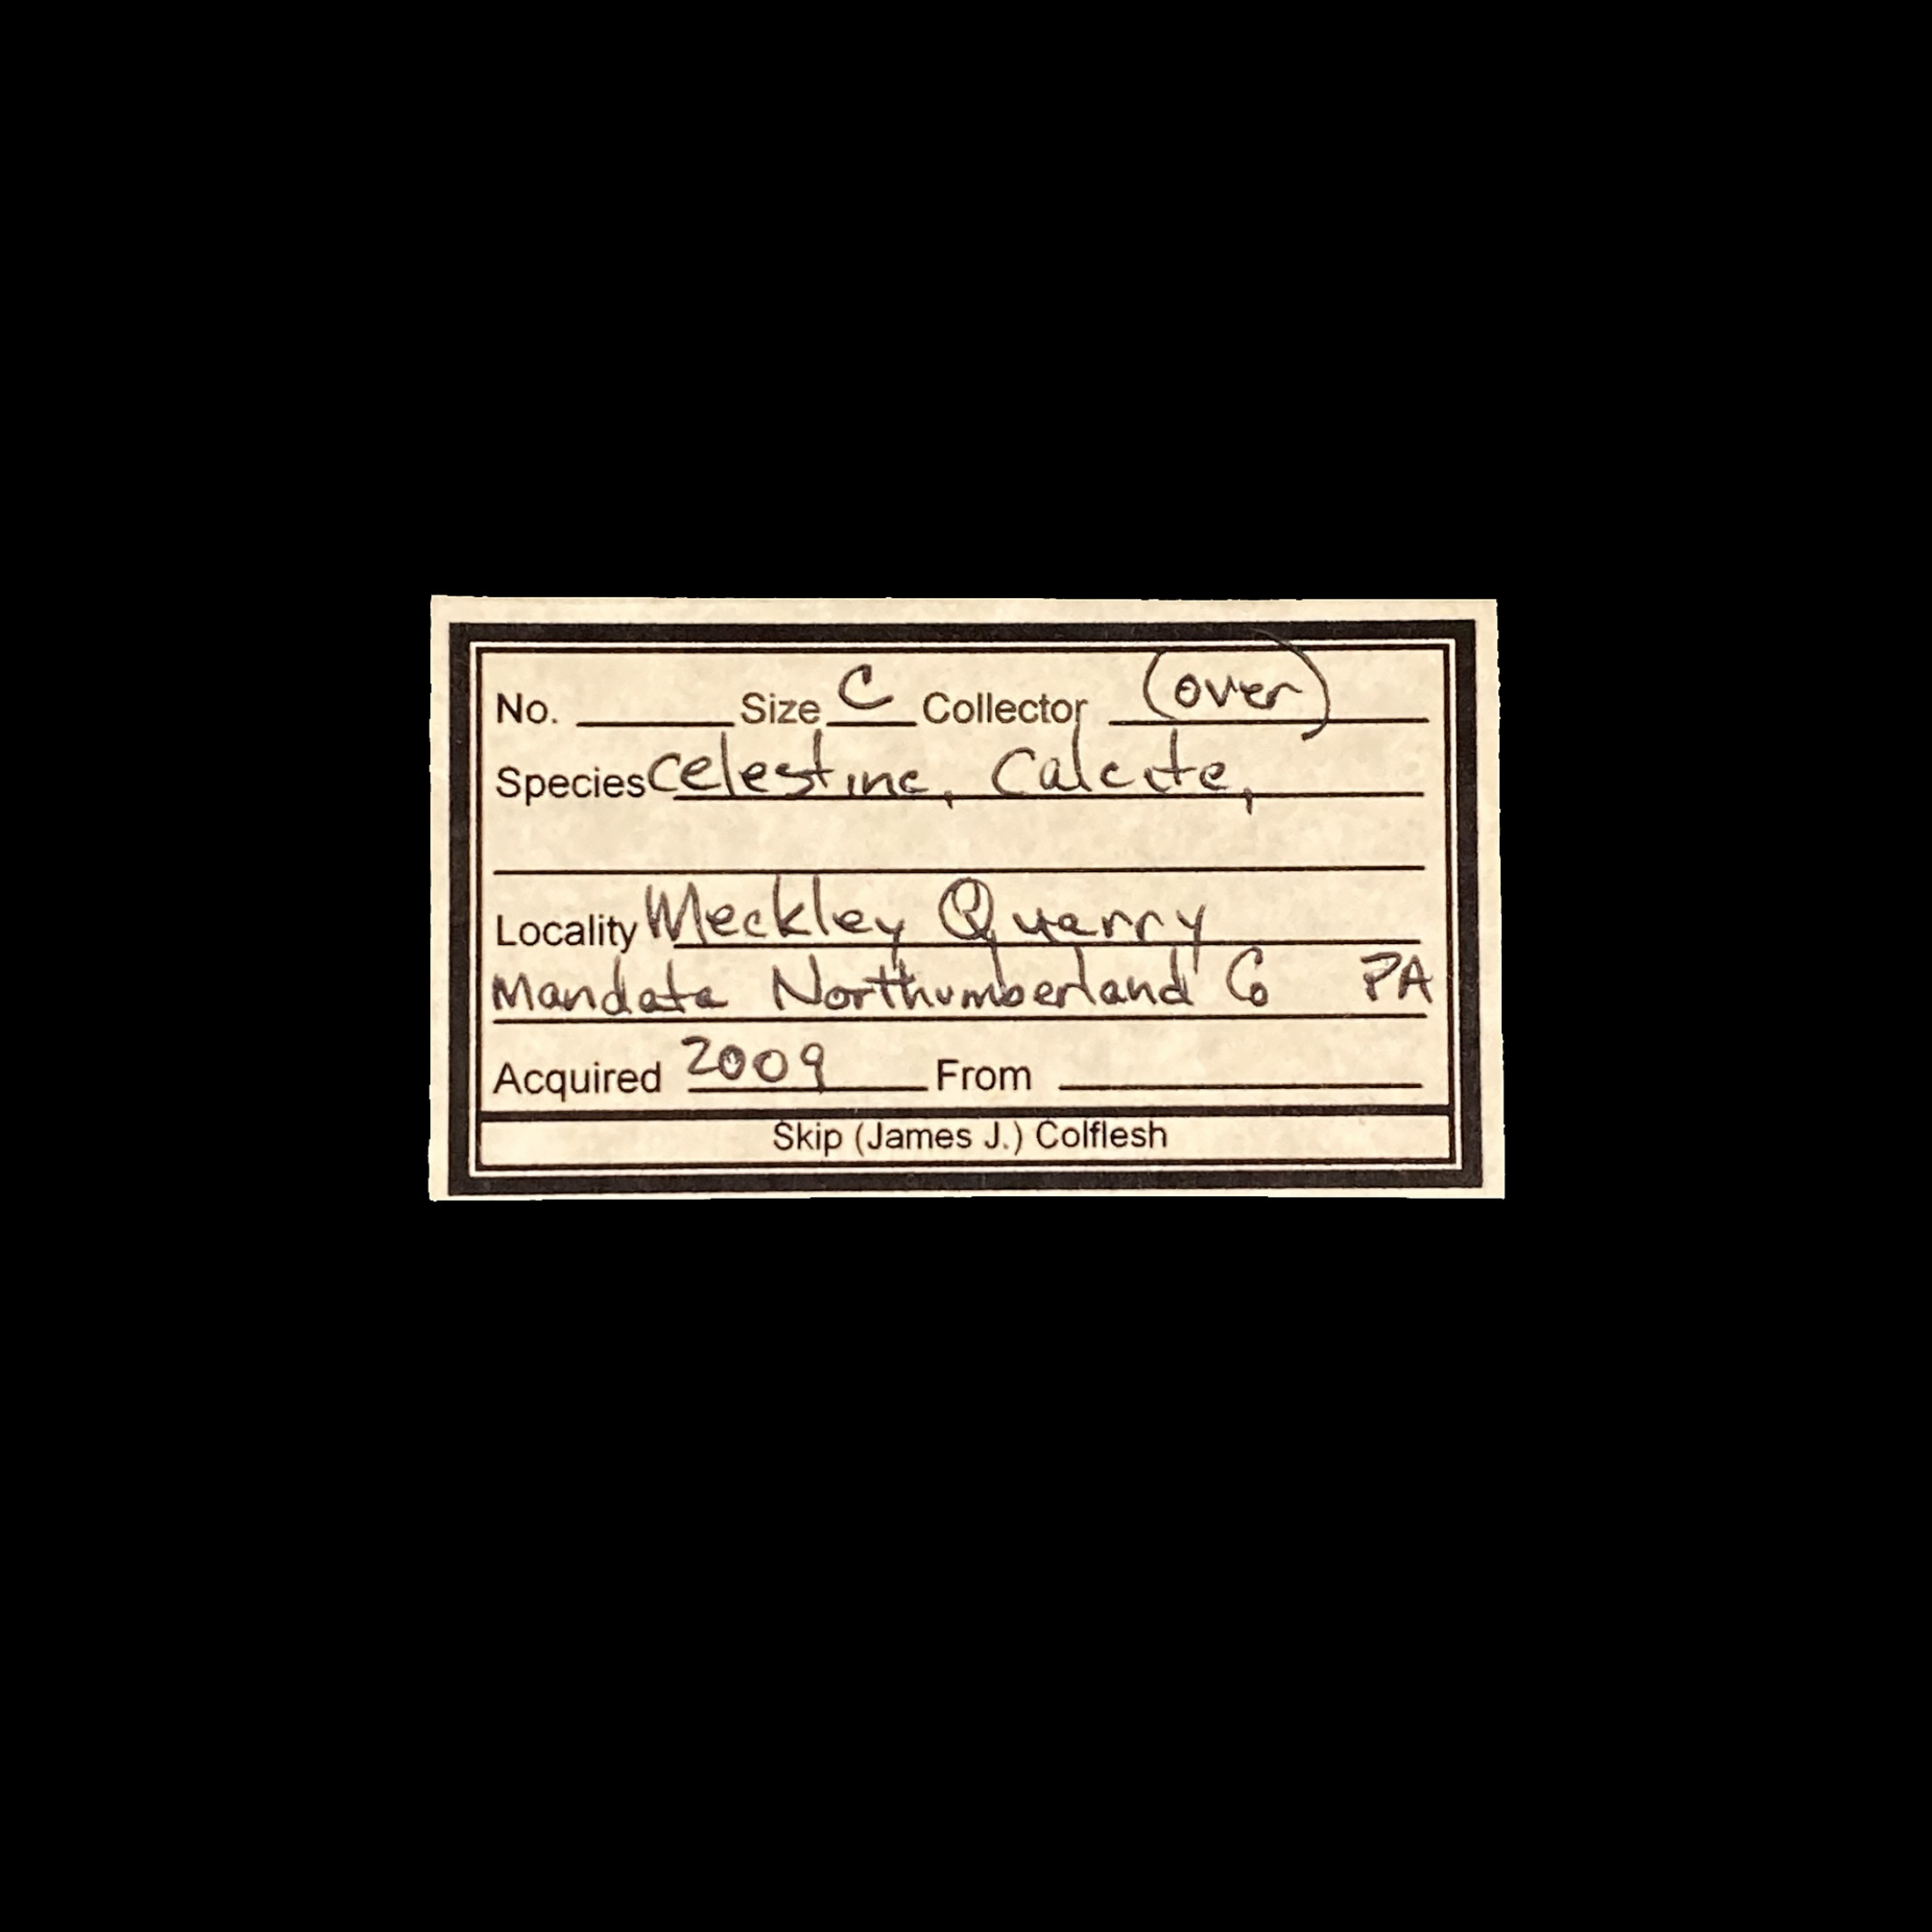 No. Size C Collector (over)
Species Celestine, Calcite,
Locality Meckley Quarry
Mandata Northumberland Co PA
Acquired 2009 From
Skip (James J.) Colflesh